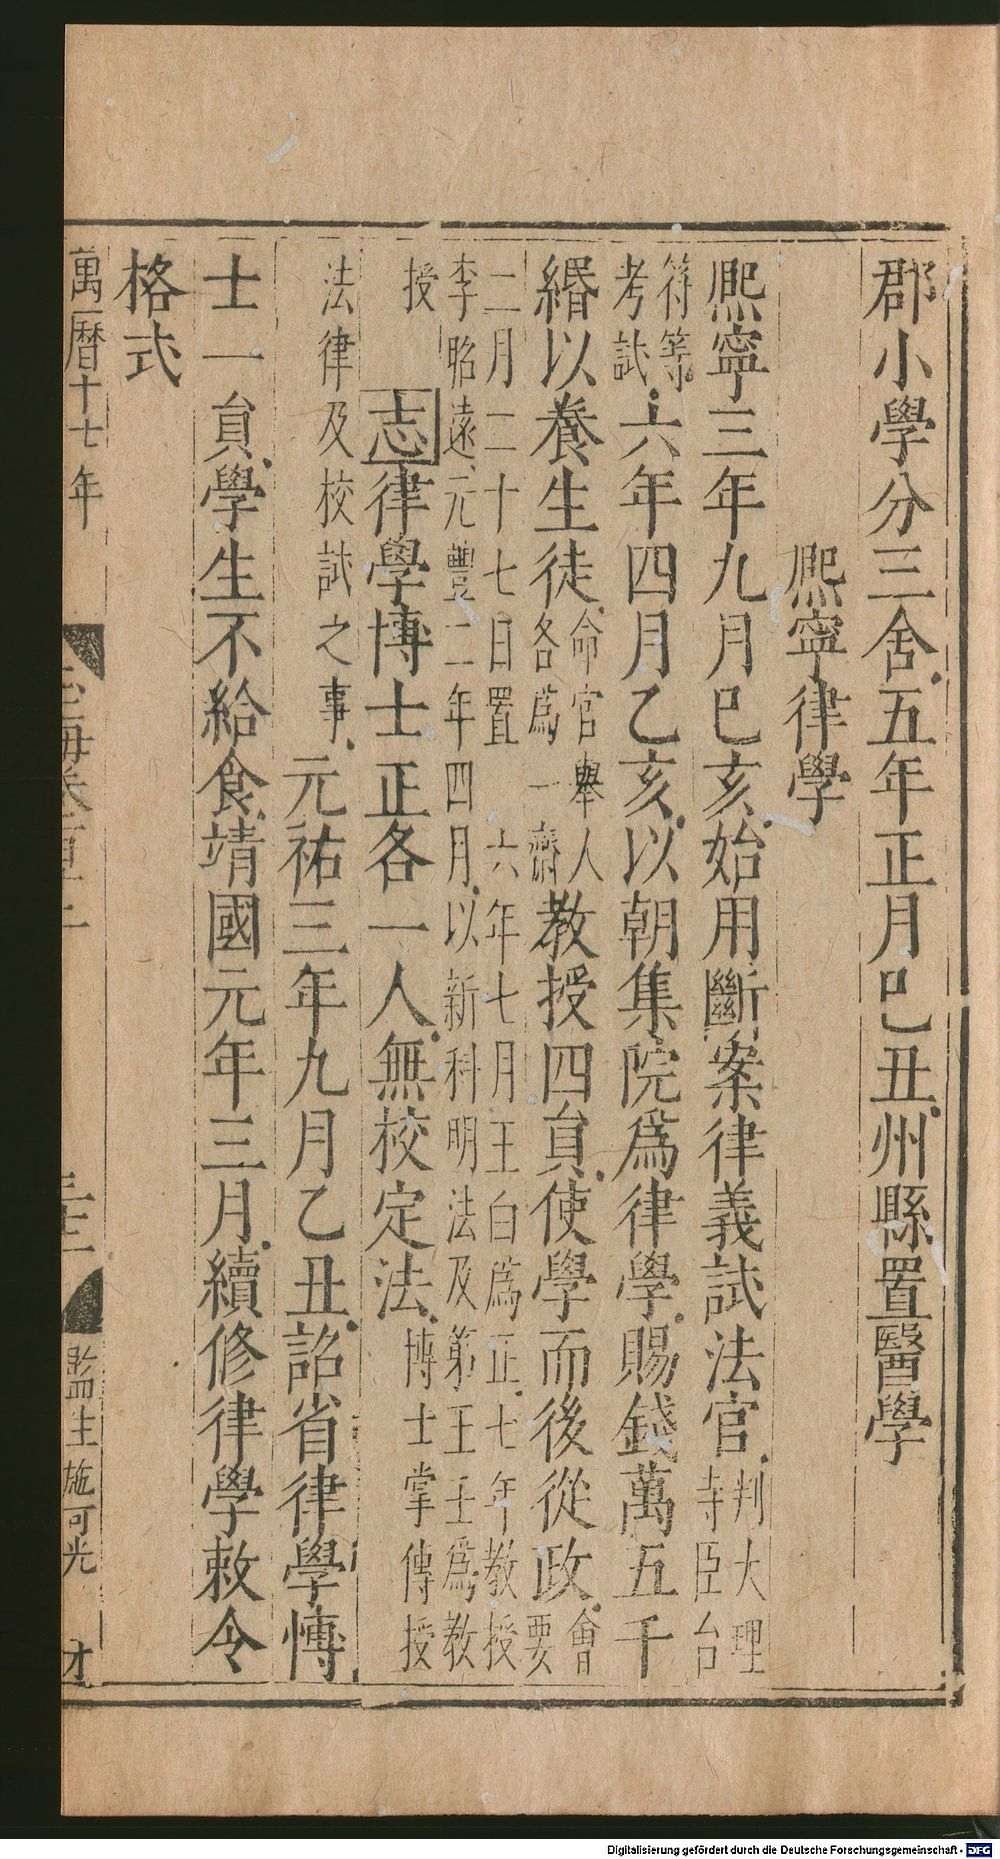 郡小學分三舍五年正月巳丑州縣置醫學
熈寧律學
熈寧三年九月巳亥始用斷案律義試法官判大理寺臣台
符等考試六年四月乙亥以朝集院爲律學賜錢萬五千
緡以養生徒命官舉人各爲一齋教授四貟使學而後從政會要
二月二十七日置六年七月王白爲正七年教授李昭遠元豐二年四月以新科明法及第王壬爲教
授志律學博士正各一人無校定法博士掌傳授
法律及校試之事元祐三年九月乙丑詔省律學愽
士一貟學生不給食靖國元年三月續修律學敕令
格式
萬曆十七年
玉海卷百十二
監生施可光
才
Digitalisierung gefördert durch die Deutsche Forschungsgemeinschaft - DFG